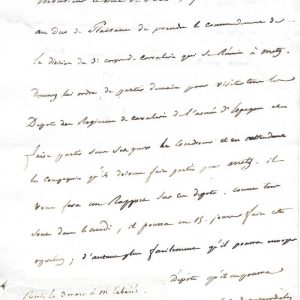 au duc de Plaisance de prendre le commandement de
la division du 3e corps de cavalerie qui se réunit à metz.
donnez lui ordre de partir demain pour visiter tous les
Dépots des Régimens de cavalerie de l'armée d'Espagne et
faire partir sous ses yeux
les compagnies qu'ils doivent faire partir pour metz. il
vous fera un Rapport sur ces dépots. comme tous
sont dans le , il pourra en 15 jours faire cette
opération; d'autant plus facilement qu'il pourra envoyer
Dépots qu'il ne pourra